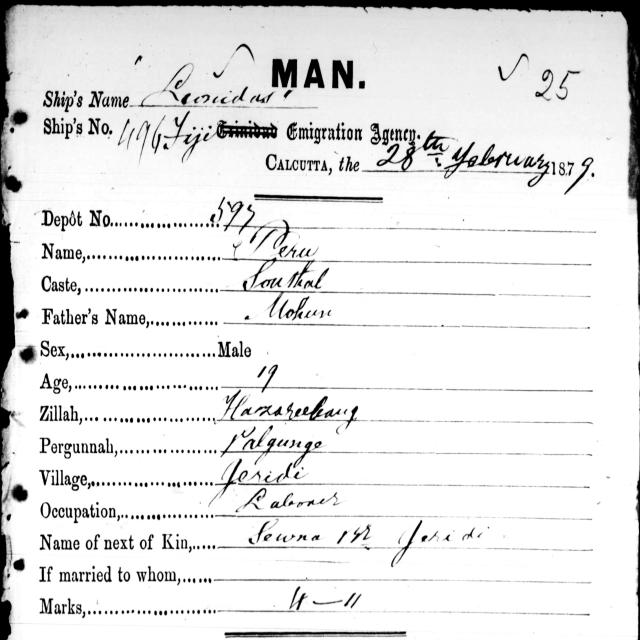 MAN.
25
Ship's Name "Leonidas"
Ship's No. 496 Fiji Trinidad Emigration Agency.
CALCUTTA, the 28th February 1879.
Depôt No. 597
Name, Peru
Caste, Sonthal
Father's Name, Mohun
Sex, Male
Age, 19
Zillah, Hazareebaug
Pergunnah, Palgunge
Village, Jeridi
Occupation, Labourer
Name of next of Kin, Sewna Br Jeridi
If married to whom,
Marks, 4-11